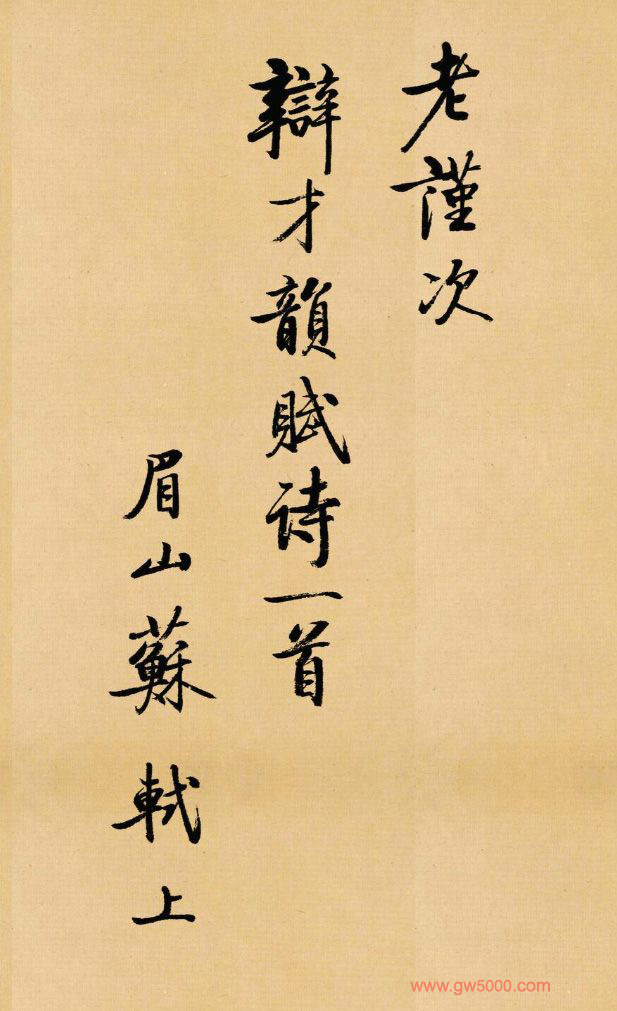 老謹次
辯才韻賦诗一首
眉山蘇軾上
www.gw5000.com